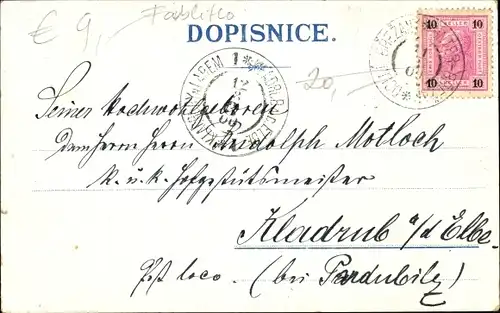 € 9,- Fablitto
DOPISNICE.
20,-
10 10
10 10
Seiner Hochwohlgeboren
dem Herrn Herrn Rudolph Motloch
k. u. k. Hofgestütsmeister
Kladrub a/d Elbe.
Post loco. (bei Pardubitz)